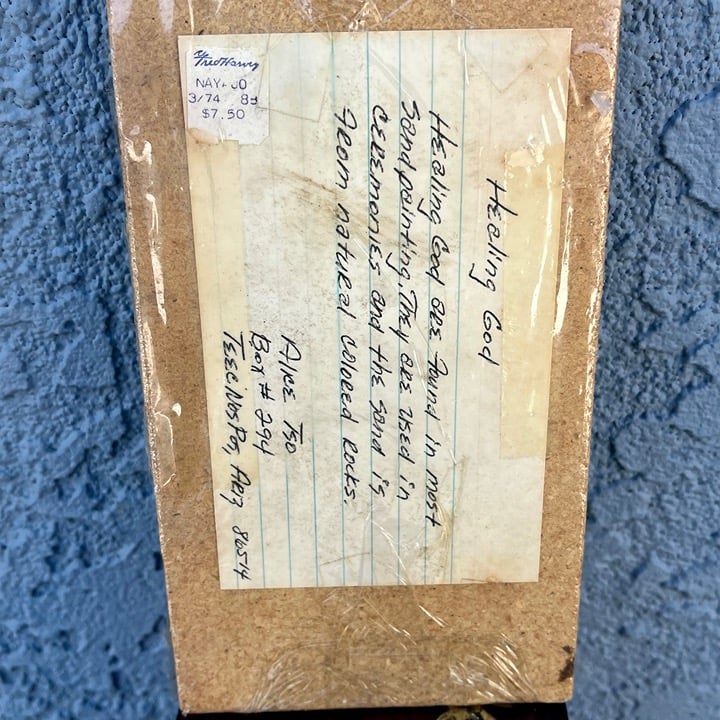 Fred Harvey
NAV. JO
3/74 8
$7.50
Healing God
Healing God are found in most
Sandpainting. They are used in
ceremonies and the sand is
from natural colored Rocks.
Tso
Box # 294
TEEC NOS POS, ARZ 86514